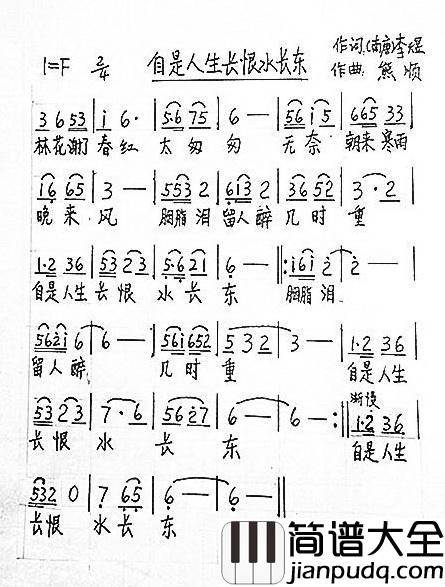 1=F 2/4 自是人生长恨水长东 作词:(南唐)李煜
作曲:熊顺
3 6 53 | i 6· | 5·6 75 | 6 — | 56 i 5 | 665 33 |
林花谢了 春红 太匆匆 无奈 朝来寒雨
i6 65 | 3 — | 553 2 | 613 2 | 36 52 | 3·2 |
晚来风 胭脂泪 留人醉 几时重
1·2 36 | 53 23 | 5·6 21 | 6 — |: i6i 2 | 2 — |
自是人生 长恨 水长东 胭脂泪
562i 6 | 6 — | 56i 652 | 5 32 | 3 — | 1·2 36 |
留人醉 几时重 自是人生
渐慢
53 23 | 7·6 | 56 27 | 6 — | 6 — :| 1·2 36 |
长恨 水 长 东 自是人生
532 0 | 7 65 | 6 — | 6 — ‖
长恨 水长东
简谱大全
jianpudq.com